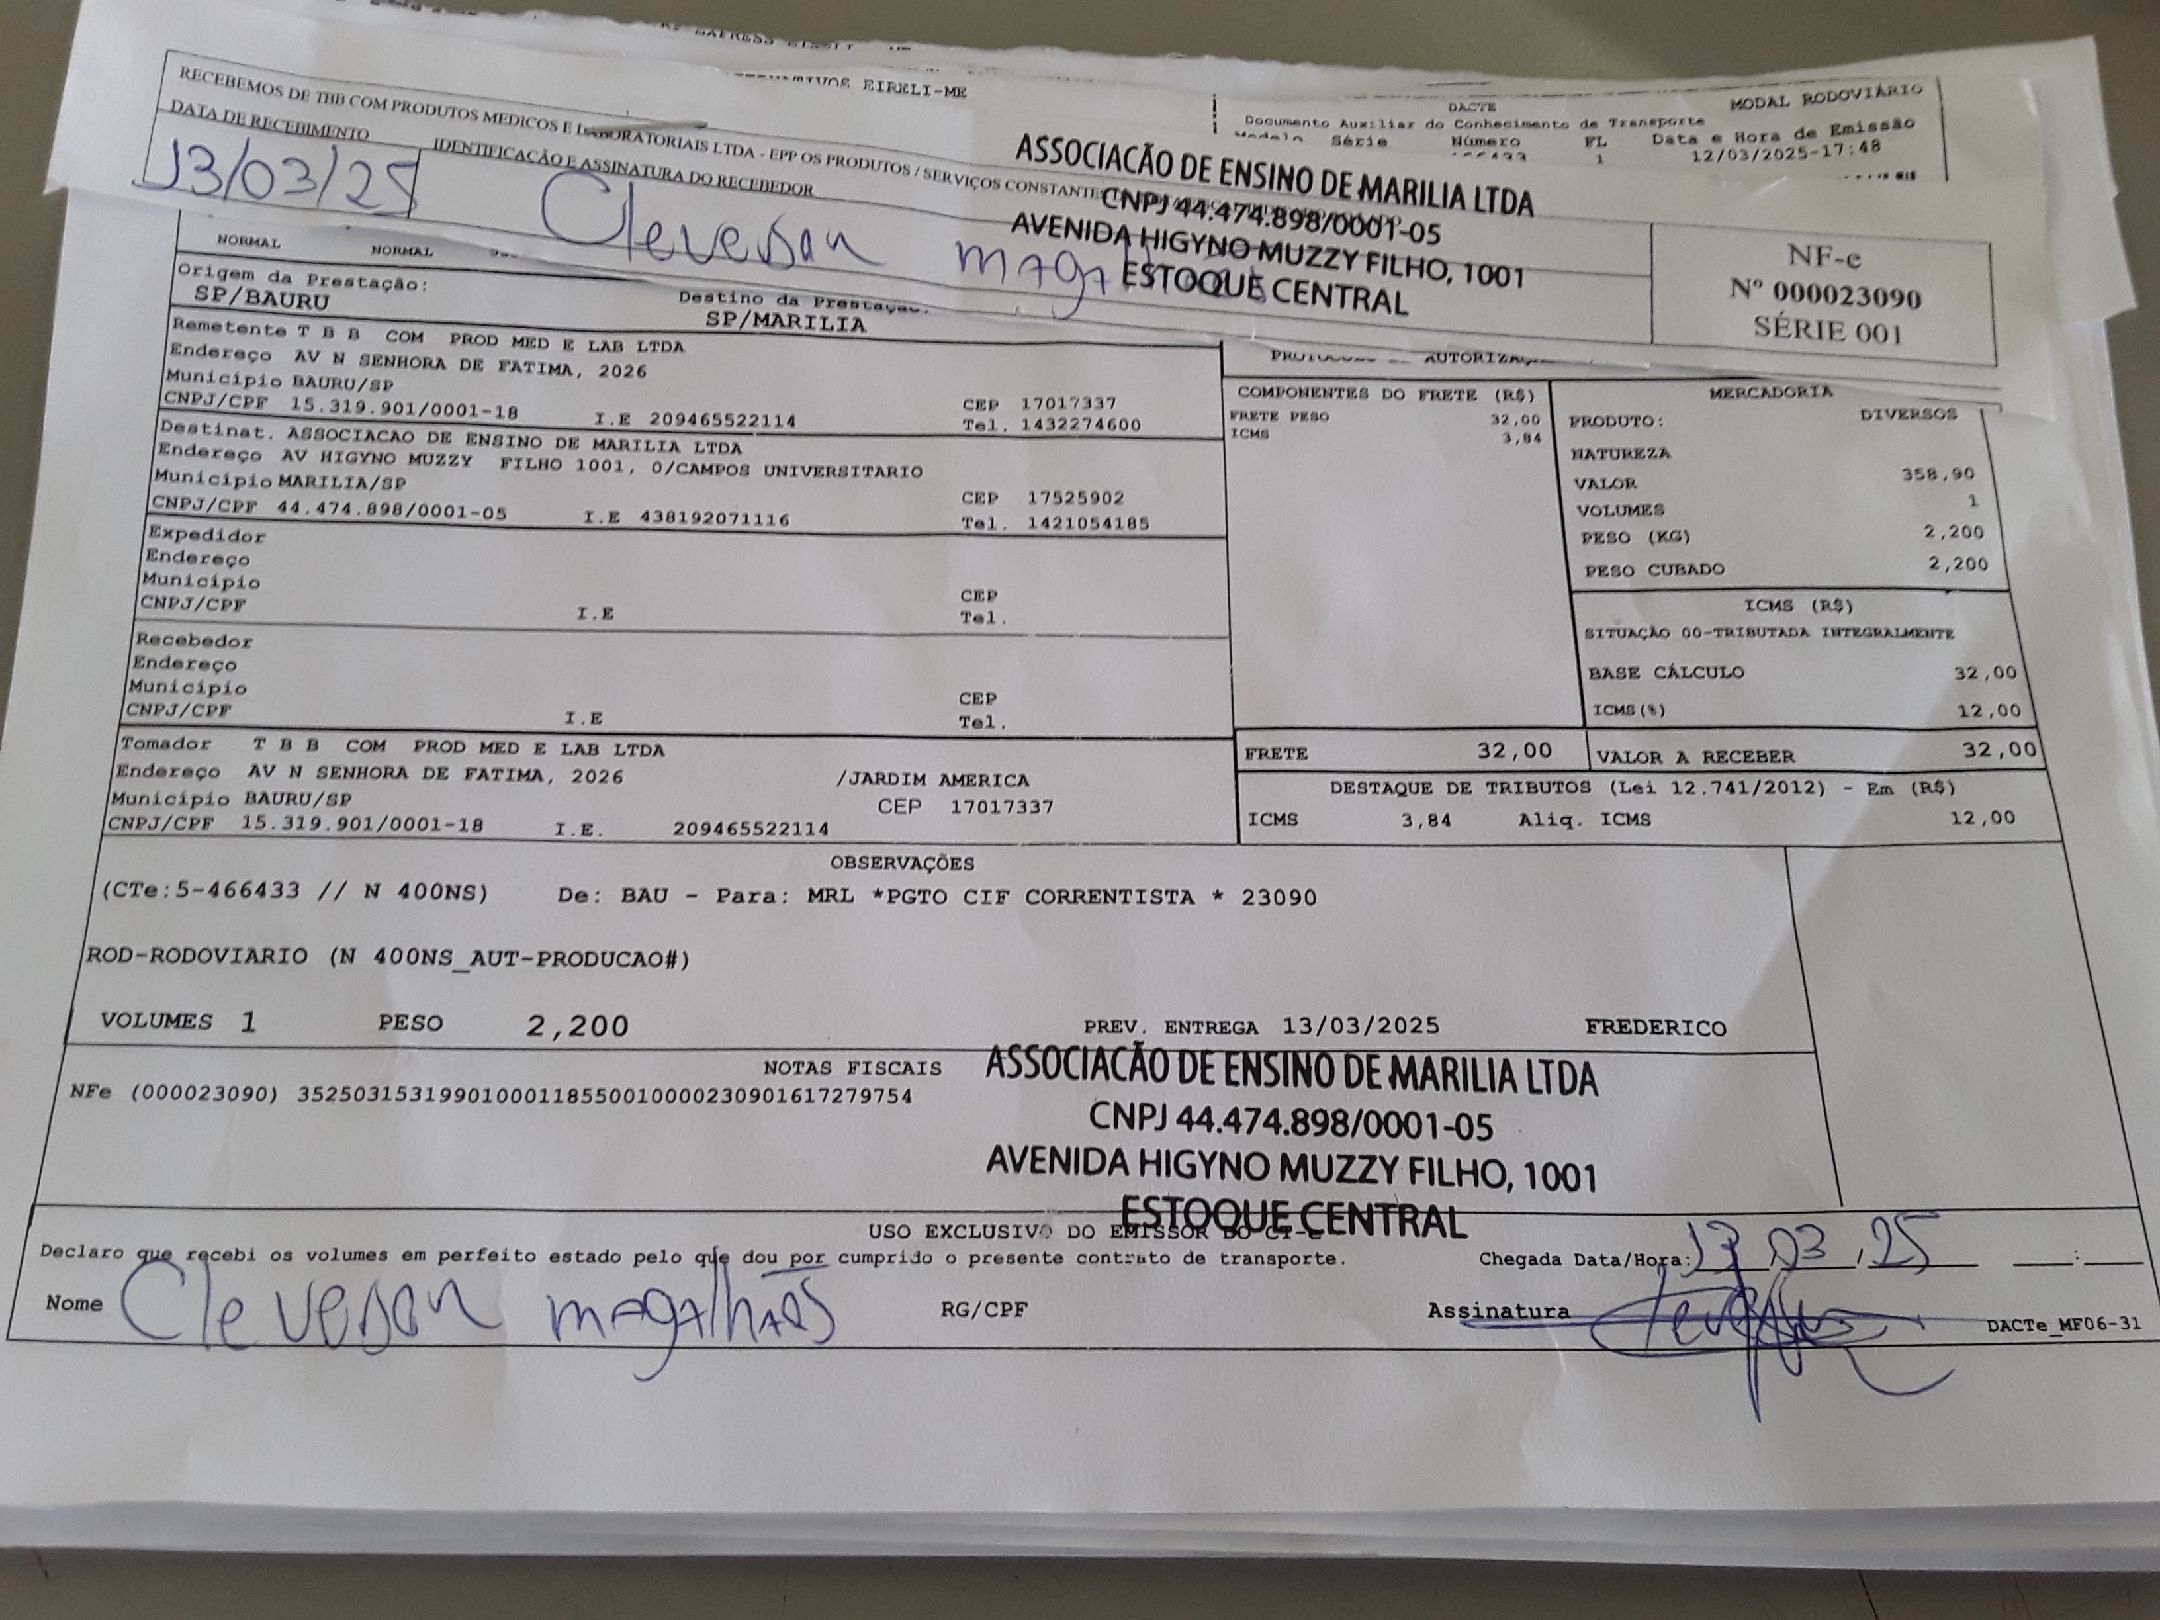 EIRELI-ME
RECEBEMOS DE TBB COM PRODUTOS MEDICOS E LABORATORIAIS LTDA - EPP OS PRODUTOS / SERVIÇOS CONSTANTE
DATA DE RECEBIMENTO
IDENTIFICAÇÃO E ASSINATURA DO RECEBEDOR
13/03/25
Cleveson magalhães
ASSOCIACÃO DE ENSINO DE MARILIA LTDA
CNPJ 44.474.898/0001-05
AVENIDA HIGYNO MUZZY FILHO, 1001
ESTOQUE CENTRAL
DACTE
MODAL RODOVIÁRIO
Documento Auxiliar do Conhecimento de Transporte
Modelo Série Número FL Data e Hora de Emissão
1 12/03/2025-17:48
NF-e
Nº 000023090
SÉRIE 001
NORMAL NORMAL
Origem da Prestação:
SP/BAURU
Destino da Prestação:
SP/MARILIA
Remetente T B B COM PROD MED E LAB LTDA
Endereço AV N SENHORA DE FATIMA, 2026
Município BAURU/SP CEP 17017337
CNPJ/CPF 15.319.901/0001-18 I.E 209465522114 Tel. 1432274600
Destinat. ASSOCIACAO DE ENSINO DE MARILIA LTDA
Endereço AV HIGYNO MUZZY FILHO 1001, 0/CAMPOS UNIVERSITARIO
Município MARILIA/SP CEP 17525902
CNPJ/CPF 44.474.898/0001-05 I.E 438192071116 Tel. 1421054185
Expedidor
Endereço
Município CEP
CNPJ/CPF I.E Tel.
Recebedor
Endereço
Município CEP
CNPJ/CPF I.E Tel.
Tomador T B B COM PROD MED E LAB LTDA
Endereço AV N SENHORA DE FATIMA, 2026 /JARDIM AMERICA
Município BAURU/SP CEP 17017337
CNPJ/CPF 15.319.901/0001-18 I.E. 209465522114
COMPONENTES DO FRETE (R$)
FRETE PESO 32,00
ICMS 3,84
MERCADORIA
PRODUTO: DIVERSOS
NATUREZA
VALOR 358,90
VOLUMES 1
PESO (KG) 2,200
PESO CUBADO 2,200
ICMS (R$)
SITUAÇÃO 00-TRIBUTADA INTEGRALMENTE
BASE CÁLCULO 32,00
ICMS(%) 12,00
FRETE 32,00 VALOR A RECEBER 32,00
DESTAQUE DE TRIBUTOS (Lei 12.741/2012) - Em (R$)
ICMS 3,84 Aliq. ICMS 12,00
OBSERVAÇÕES
(CTe:5-466433 // N 400NS) De: BAU - Para: MRL *PGTO CIF CORRENTISTA * 23090
ROD-RODOVIARIO (N 400NS_AUT-PRODUCAO#)
VOLUMES 1 PESO 2,200 PREV. ENTREGA 13/03/2025 FREDERICO
NOTAS FISCAIS
NFe (000023090) 35250315319901000118550010000230901617279754
ASSOCIACÃO DE ENSINO DE MARILIA LTDA
CNPJ 44.474.898/0001-05
AVENIDA HIGYNO MUZZY FILHO, 1001
ESTOQUE CENTRAL
USO EXCLUSIVO DO EMISSOR DO CT-E
Declaro que recebi os volumes em perfeito estado pelo que dou por cumprido o presente contrato de transporte.
Chegada Data/Hora: 13 03 25 :
Nome Cleveson magalhães RG/CPF Assinatura
DACTe_MF06-31